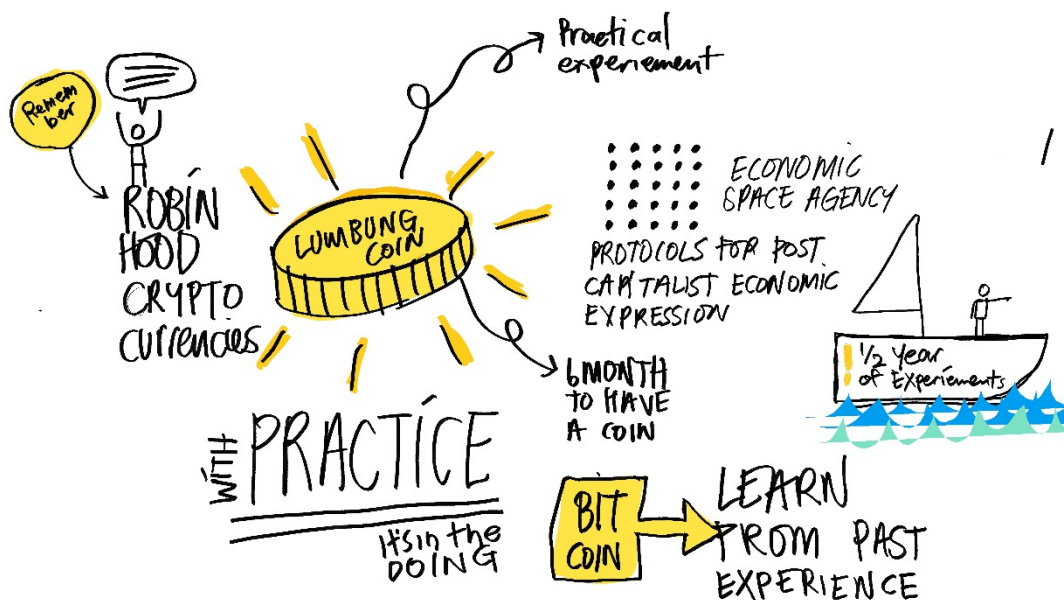 Remem
ber
ROBIN
HOOD
CRYPTO
currencies
LUMBUNG
COIN
Practical
experiement
ECONOMIC
SPACE AGENCY
PROTOCOLS FOR POST
CAPITALIST ECONOMIC
EXPRESSION
6 MONTH
TO HAVE
A COIN
1/2 Year
of Experiements
WITH PRACTICE
It's in the
DOING
BIT
COIN
LEARN
FROM PAST
EXPERIENCE